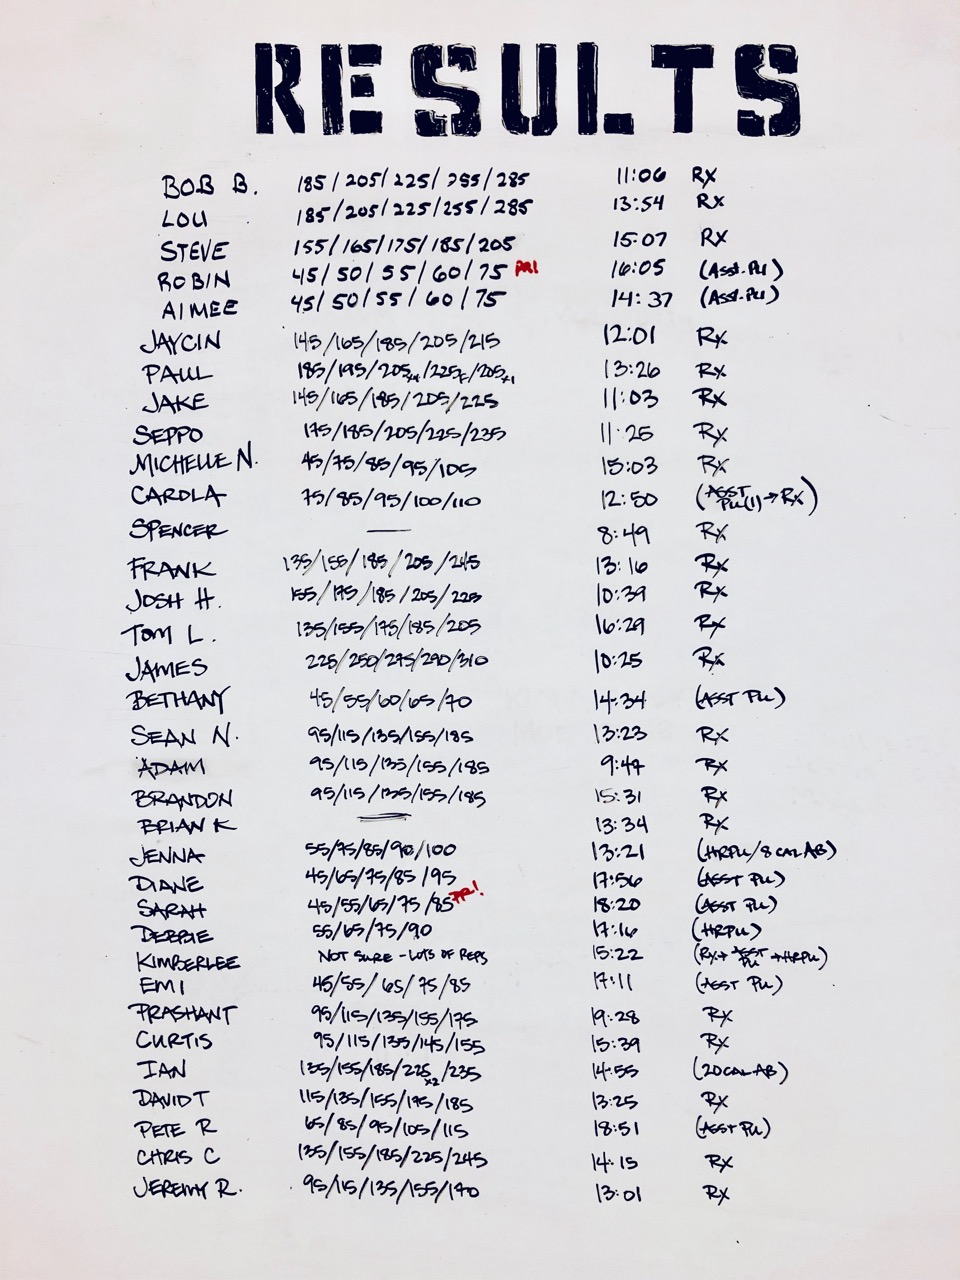 RESULTS
BOB B. 185/205/225/255/285 11:06 Rx
LOU 185/205/225/255/285 13:54 Rx
STEVE 155/165/175/185/205 15:07 Rx
ROBIN 45/50/55/60/75 PR! 16:05 (Asst. PU)
AIMEE 45/50/55/60/75 14:37 (Asst. PU)
JAYCIN 145/165/185/205/215 12:01 Rx
PAUL 185/195/205x4/225F/205x1 13:26 Rx
JAKE 145/165/185/205/225 11:03 Rx
SEPPO 175/185/205/225/235 11:25 Rx
MICHELLE N. 45/75/85/95/105 15:03 Rx
CAROLA 75/85/95/100/110 12:50 (ASST PU(1)→Rx)
SPENCER — 8:49 Rx
FRANK 135/155/185/205/245 13:16 Rx
JOSH H. 155/175/185/205/225 10:39 Rx
TOM L. 135/155/175/185/205 16:29 Rx
JAMES 225/250/275/290/310 10:25 Rx
BETHANY 45/55/60/65/70 14:34 (ASST PU)
SEAN N. 95/115/135/155/185 13:23 Rx
ADAM 95/115/135/155/185 9:44 Rx
BRANDON 95/115/135/155/185 15:31 Rx
BRIAN K — 13:34 Rx
JENNA 55/75/85/90/100 13:21 (HRPU/8 CAL AB)
DIANE 45/65/75/85/95 17:56 (ASST PU)
SARAH 45/55/65/75/85 PR! 18:20 (ASST PU)
DEBBIE 55/65/75/90 17:16 (HRPU)
KIMBERLEE NOT SURE - LOTS OF REPS 15:22 (Rx→ASST PU→HRPU)
EMI 45/55/65/75/85 17:11 (ASST PU)
PRASHANT 95/115/135/155/175 19:28 Rx
CURTIS 95/115/135/145/155 15:39 Rx
IAN 135/155/185/225x2/235 14:55 (20 CAL AB)
DAVID T 115/135/155/175/185 13:25 Rx
PETE R 65/85/95/105/115 18:51 (ASST PU)
CHRIS C 135/155/185/225/245 14:15 Rx
JEREMY R. 95/115/135/155/170 13:01 Rx